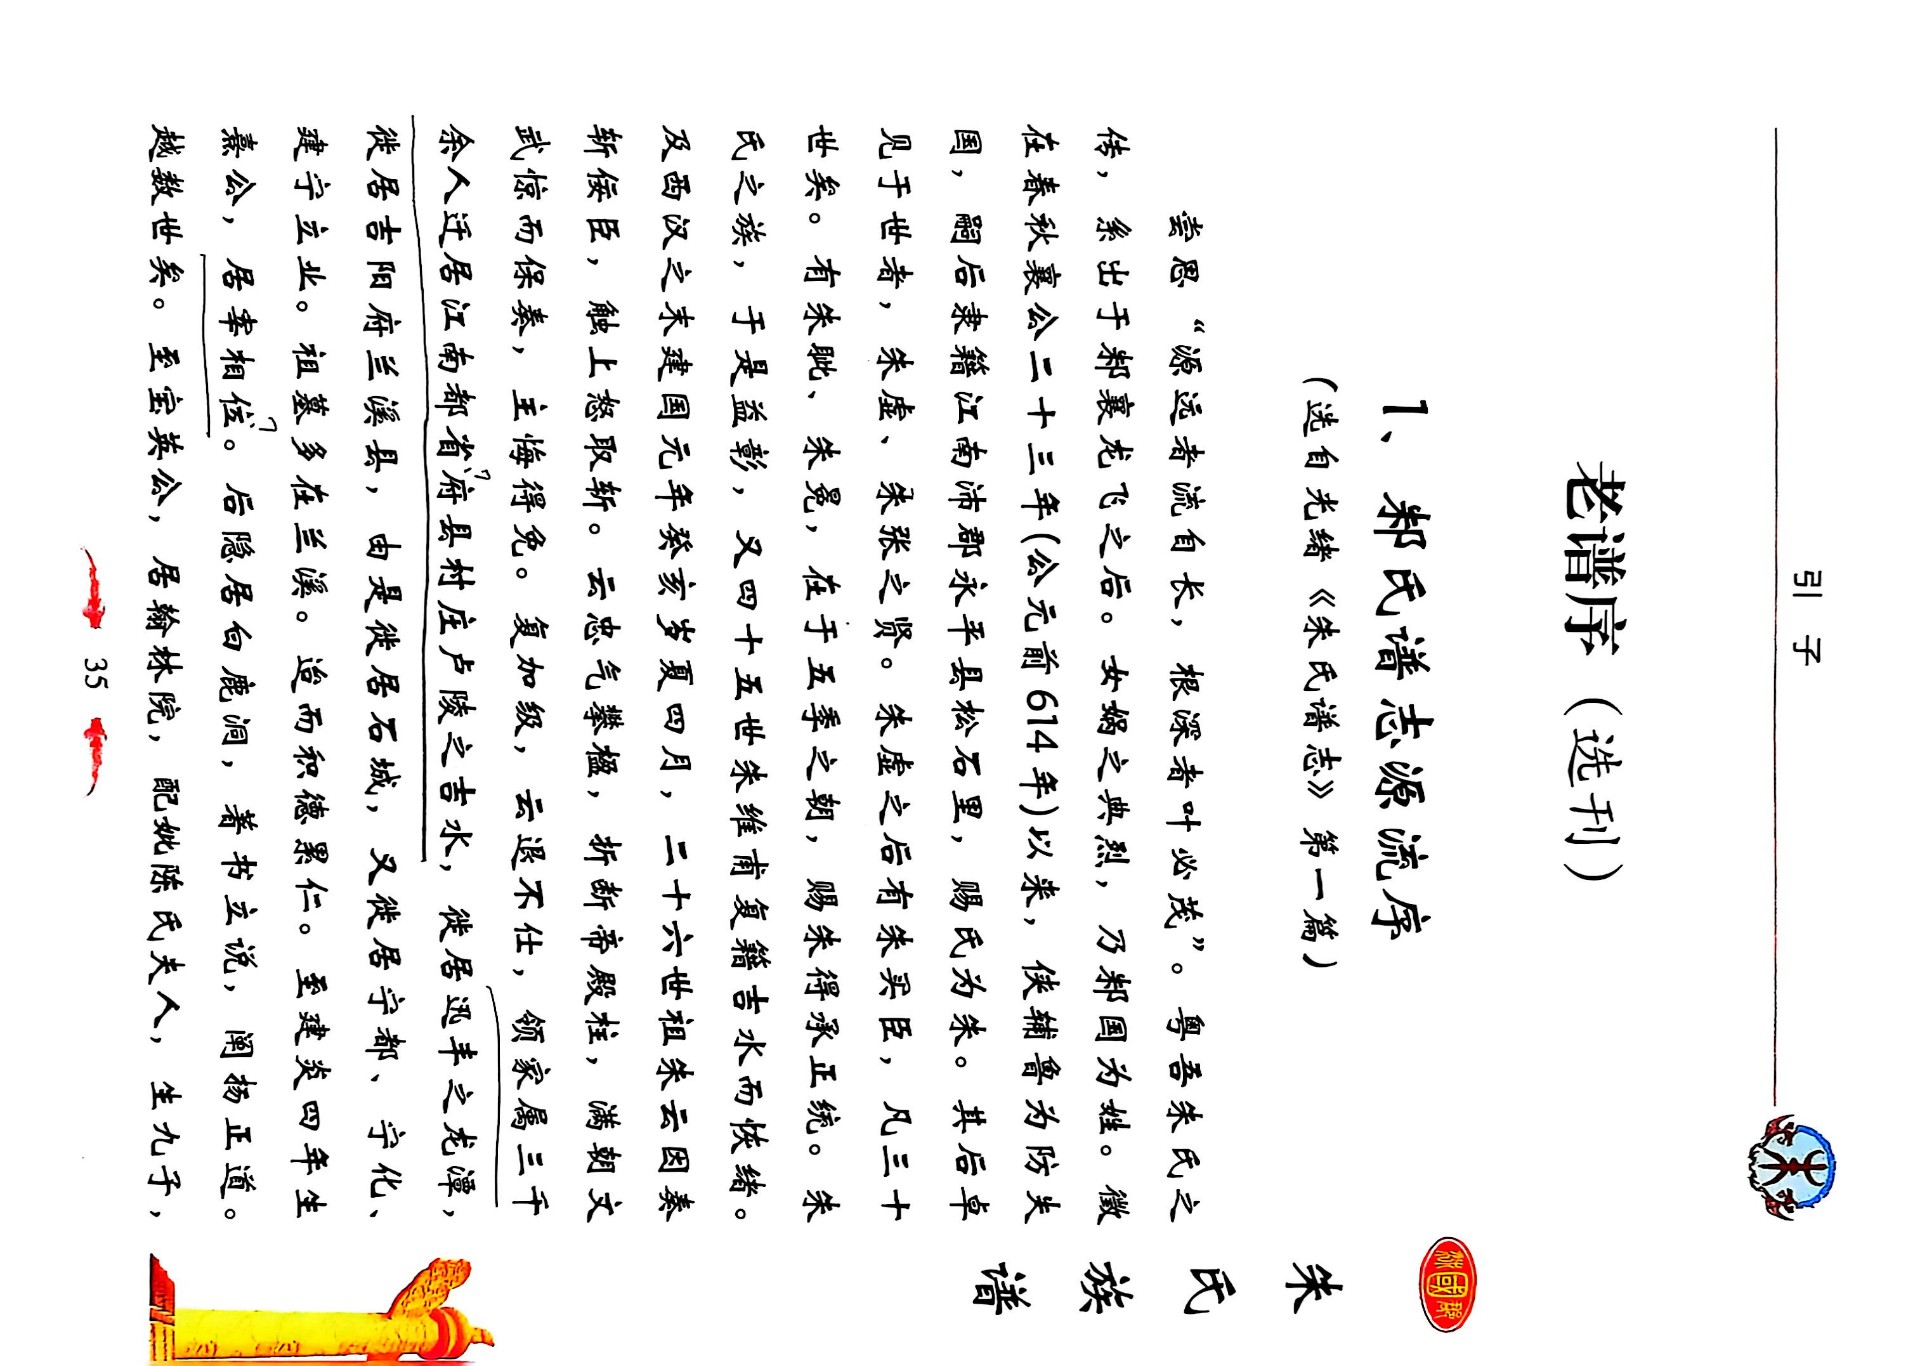 引 子
老谱序（选刊）
1、邾氏谱志源流序
（选自光绪《朱氏谱志》第一篇）
尝思“源远者流自长，根深者叶必茂”。粤吾朱氏之
传，系出于邾襄龙飞之后。女娲之典烈，乃邾国为姓。徵
在春秋襄公二十三年(公元前614年)以来，侠辅鲁为防失
国，嗣后隶籍江南沛郡永平县松石里，赐氏为朱。其后卓
见于世者，朱虚、朱张之贤。朱虚之后有朱买臣，凡三十
世矣。有朱毗、朱晃，在于五季之朝，赐朱得承正统。朱
氏之族，于是益彰，又四十五世朱维甫复籍吉水而恢绪。
及西汉之末建国元年癸亥岁夏四月，二十六世祖朱云因奏
斩佞臣，触上怒取斩。云忠气攀楹，折断帝殿柱，满朝文
武惊而保奏，主悔得免。复加级，云退不仕，领家属三千
余人迁居江南都省府县村庄卢陵之吉水，徙居迅丰之龙潭，
徙居吉阳府兰溪县，由是徙居石城，又徙居宁都、宁化、
建宁立业。祖墓多在兰溪。迨而积德累仁。至建炎四年生
熹公，居宰相位。后隐居白鹿洞，著书立说，阐扬正道。
越数世矣。至宝英公，居翰林院，配妣陈氏夫人，生九子，
35
朱氏族谱